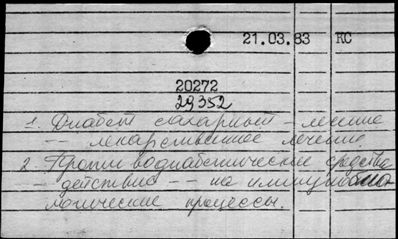 21.03.83 КС
20272
29352
1. Диабет сахарный – лечение
– – лекарственное лечение.
2. Противодиабетические средства
– действие – – на иммунобио-
логические процессы.